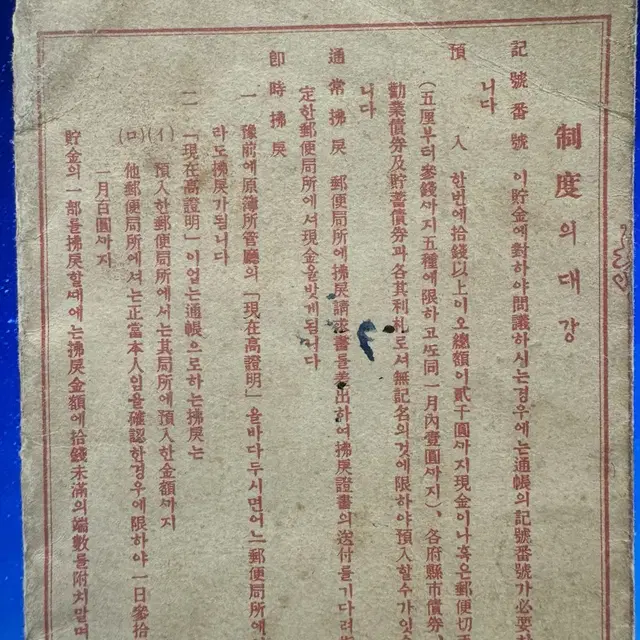 制度의대강
記號番號 이貯金에對하야問議하시는경우에는通帳의記號番號가必要하
니다
預入 한번에拾錢以上이오總額이貳千圓까지現金이나혹은郵便切手
(五厘부터參錢까지五種에限하고또同一月內壹圓까지)、各府縣市債券、
勸業債券及貯蓄債券과各其利札로서無記名의것에限하야預入할수가잇습
니다
通常拂戾 郵便局所에拂戾請求書를差出하여拂戾證書의送付를기다려
定한郵便局所에서現金을밧게됩니다
卽時拂戾
一 豫前에原簿所管廳의「現在高證明」을바다두시면어느郵便局所에서
라도拂戾가됩니다
二 「現在高證明」이업는通帳으로하는拂戾는
(イ) 預入한郵便局所에서는其局所에預入한金額까지
(ロ) 他郵便局所에서는正當本人임을確認한경우에限하야一日參拾
一月百圓까지
貯金의一部를拂戾할때에는拂戾金額에拾錢未滿의端數를附치말며